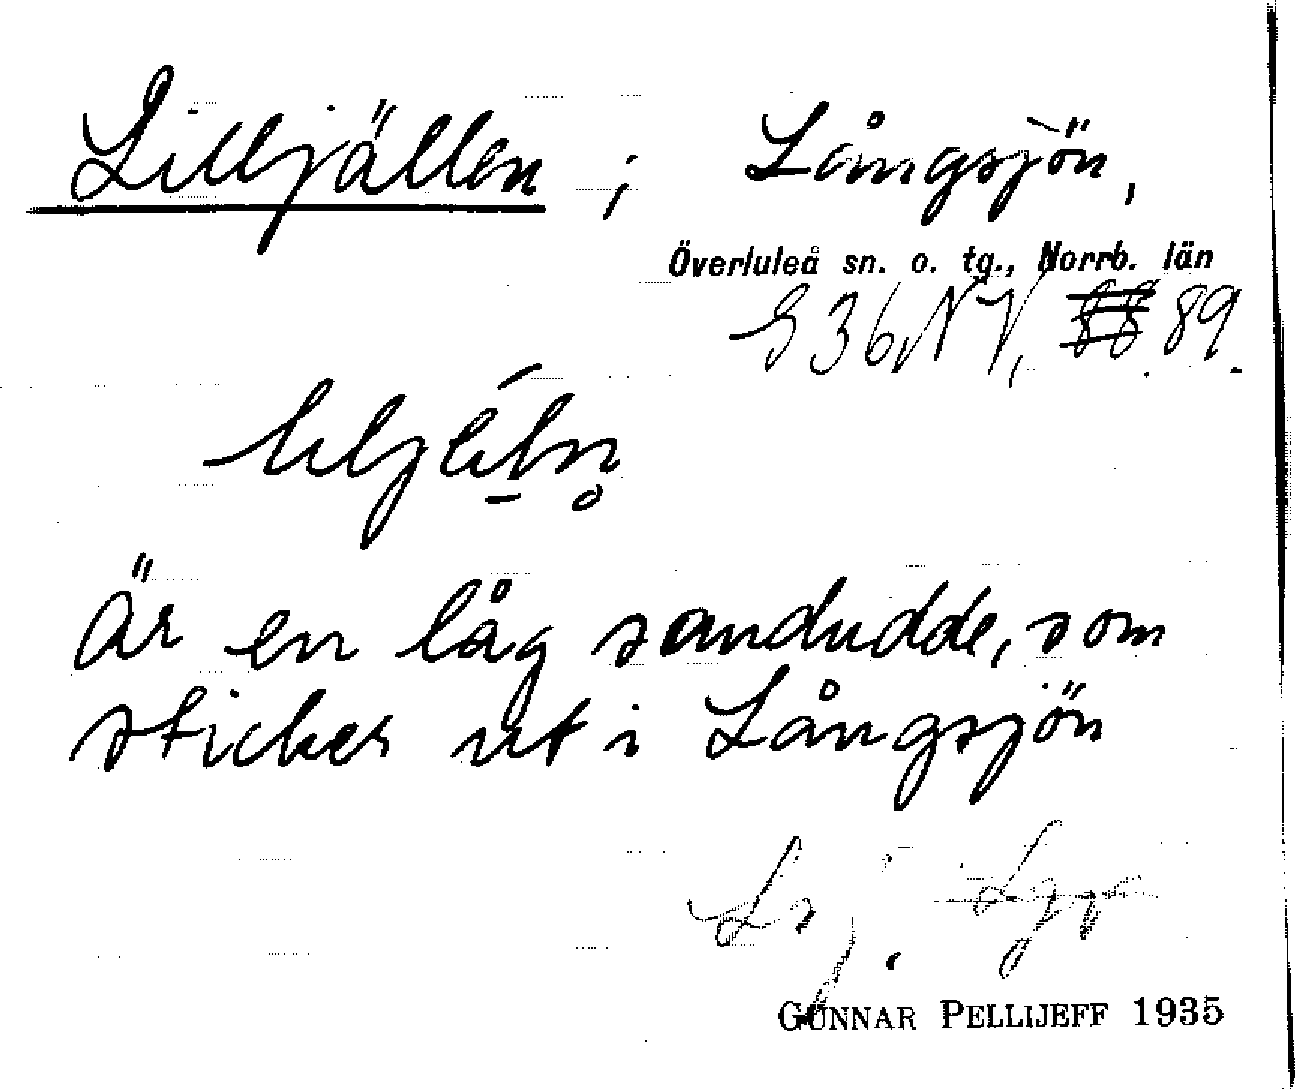 Lilljällen ; Långsjön,
Överluleå sn. o. tg., Norrb. län
G 36, NV, 89.
Är en låg sandudde, som
sticker ut i Långsjön
Lsj.
GUNNAR PELLIJEFF 1935